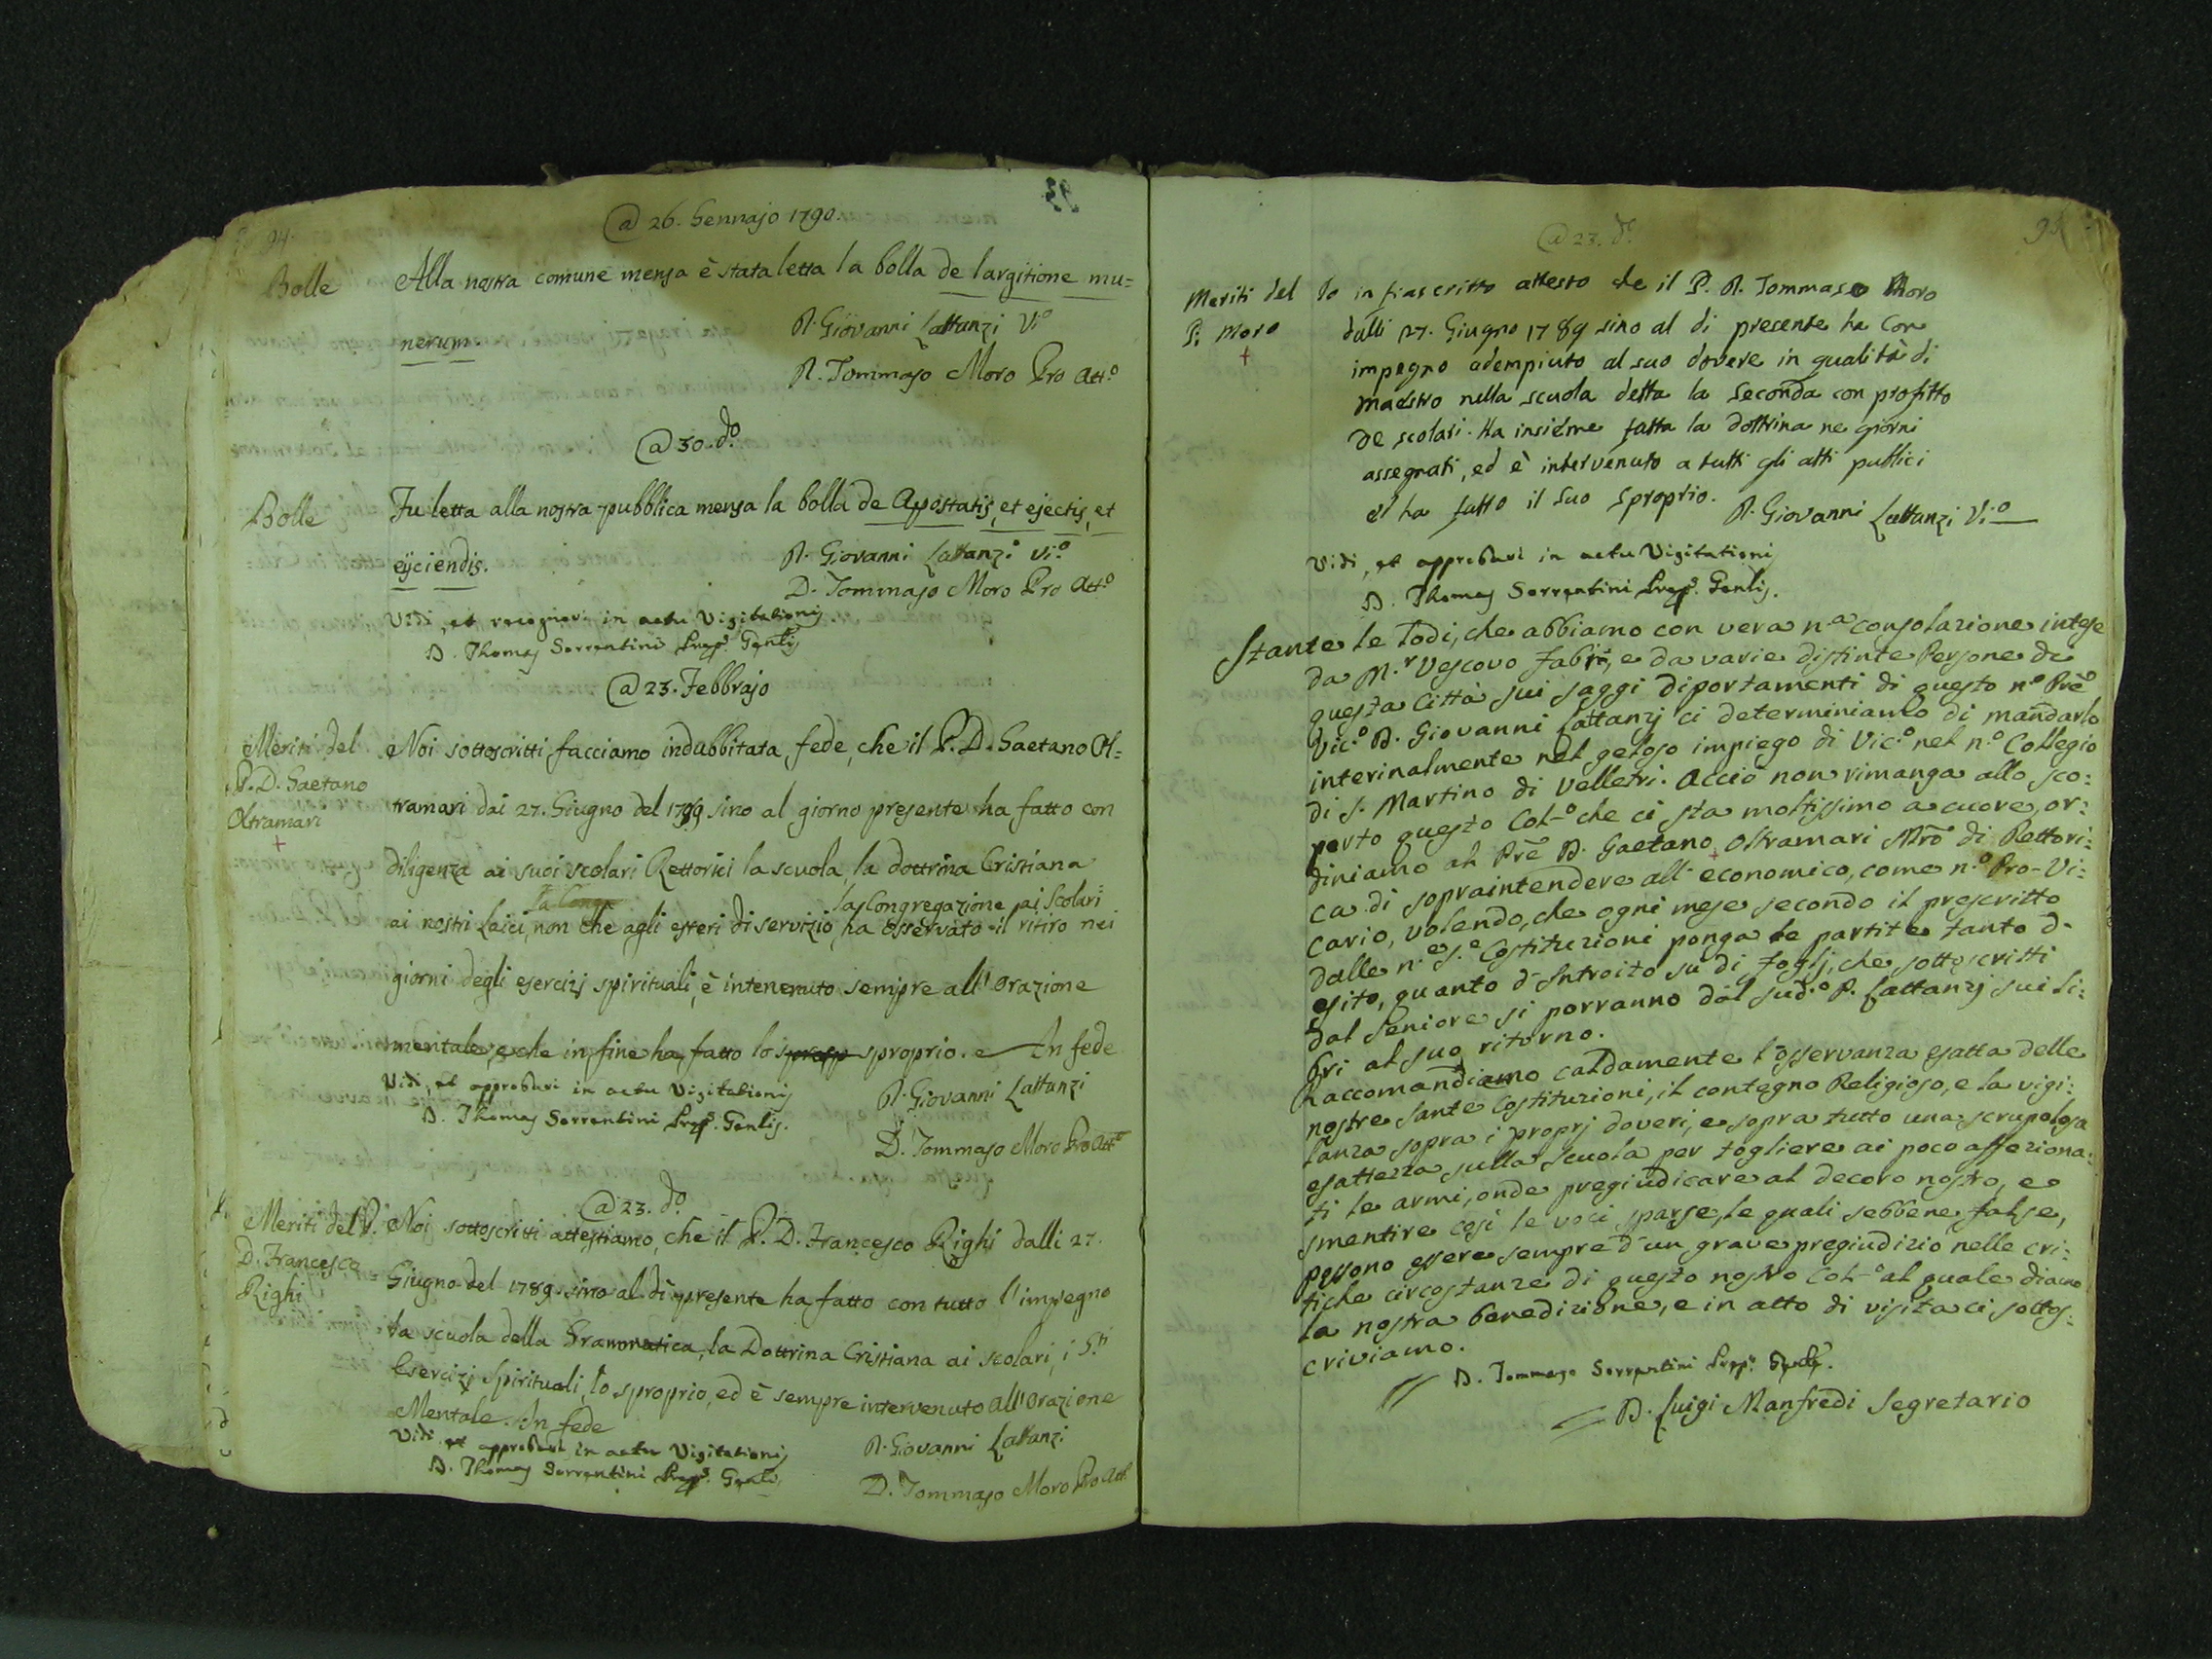 94.
@ 26. Gennajo 1790.
Bolle
Alla nostra comune mensa è stata letta la bolla de largitione mu=
nerum.
D. Giovanni Lattanzi V.o
D. Tommaso Moro Pro Att.o
@ 30. d.o
Bolle
Fu letta alla nostra pubblica mensa la bolla de Apostatis, et ejectis, et
ejiciendis.
D. Giovanni Lattanzi Vi.o
D. Tommaso Moro Pro Att.o
Vidi, et recognovi in actu Visitationis
D. Thomas Sorrentini Prep. Genlis
@ 23. Febbrajo
Meriti del
P. D. Gaetano
Oltramari
+
Noi sottoscritti facciamo indubbitata fede, che il P. D. Gaetano Ol-
tramari dai 27. Giugno del 1789 sino al giorno presente ha fatto con
diligenza ai suoi scolari Rettorici la scuola, la dottrina Cristiana
la Congregazione ai Scolari
ai nostri Laici, non che agli esteri di servizio, ha osservato il ritiro nei
giorni degli esercizj spirituali, è intenenuto sempre all' Orazione
mentale, e che in fine ha fatto lo sproprio. e In fede
Vidi, et approbavi in actu Visitationis
D. Thomas Sorrentini Prep. Genlis.
D. Giovanni Lattanzi
D. Tommaso Moro Pro Att.o
@ 23. d.o
Meriti del P.
D. Francesco
Righi
Noi sottoscritti attestiamo, che il P. D. Francesco Righi dalli 27.
Giugno del 1789. sino al dì presente ha fatto con tutto l' impegno
la scuola della Grammatica, la Dottrina Cristiana ai scolari, i S.ti
Esercizj Spirituali, lo sproprio, ed è sempre intervenuto all' Orazione
Mentale. In fede
Vidi et approbavi in actu Visitationis
D. Thomas Sorrentini Prep. Genlis
D. Giovanni Lattanzi
D. Tommaso Moro Pro Att.
95
@ 23. d.o
Meriti del
P. Moro
+
Io infrascritto attesto che il P. D. Tommaso Moro
dalli 27. Giugno 1789 sino al di presente ha con
impegno adempiuto al suo dovere in qualità di
Maestro nella scuola detta la Seconda con profitto
de scolari. Ha insieme fatta la dottrina ne giorni
assegnati, ed è intervenuto a tutti gli atti publici
ed ha fatto il suo sproprio.
D. Giovanni Lattanzi Vi.o
Vidi, et approbavi in actu Visitationis
D. Thomas Sorrentini Prep. Genlis.
Stante le lodi, che abbiamo con vera n.a consolazione intese
da M.r Vescovo Fabri, e da varie distinte Persone di
questa Città sui saggi diportamenti di questo n.o Prē
Vic.o D. Giovanni Lattanzj ci determiniamo di mandarlo
interinalmente nel geloso impiego di Vic.o nel n.o Collegio
di S. Martino di Velletri. Acciò non rimanga allo sco:
perto questo Col-o che ci sta moltissimo a cuore, or:
diniamo al Prē D. Gaetano Oltramari Mrō di Rettori:
ca di sopraintendere all' economico, come n.o Pro-Vi:
cario, volendo, che ogni mese secondo il prescritto
dalle n.e S.e Costituzioni ponga le partite tanto d'
esito, quanto d'Introito su di foglj, che sottoscritti
dal Seniore si porranno dal sud.o P. Lattanzj sui li:
bri al suo ritorno.
Raccomandiamo caldamente l'osservanza esatta delle
nostre Sante Costituzioni, il contegno Religioso, e la vigi:
lanza sopra i proprj doveri, e sopra tutto una scrupolosa
esattezza sulla Scuola per togliere ai poco affeziona:
ti le armi, onde pregiudicare al decoro nostro, e
smentire così le voci sparse, le quali sebbene false,
possono essere sempre d'un grave pregiudizio nelle cri:
tiche circostanze di questo nostro Col-o al quale diamo
la nostra benedizione, e in atto di visita ci sottos:
criviamo.
D. Tommaso Sorrentini Prep. Genle.
D. Luigi Manfredi Segretario